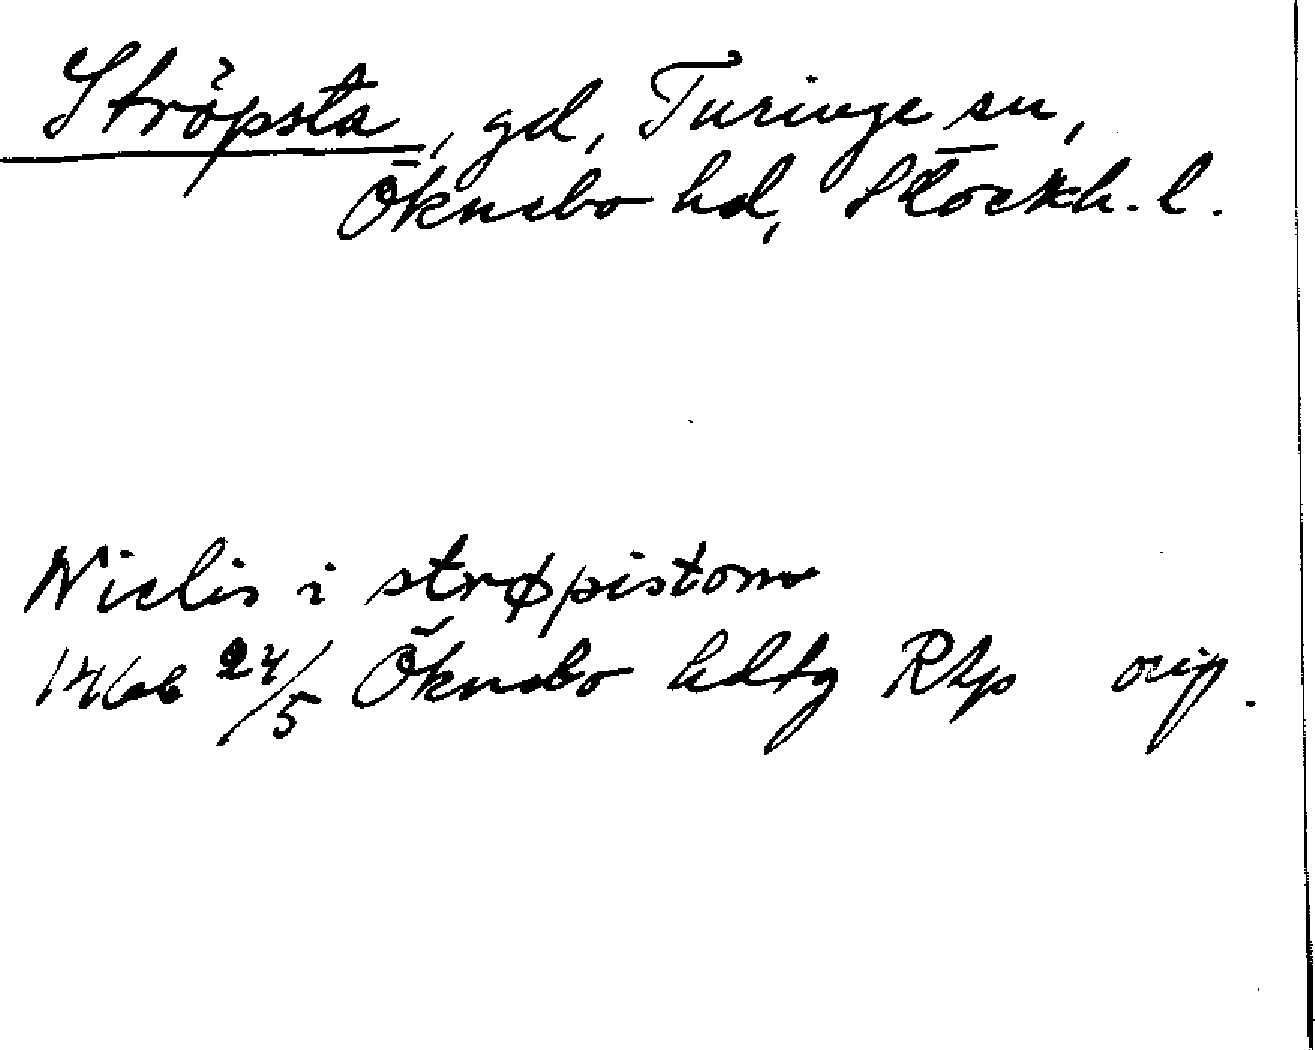 Ströpsta, gd, Turinge sn,
Öknebo hd, Stockh. l.
Niclis i strøpistom
1466 24/5 Öknebo hdtg Rtp orig.